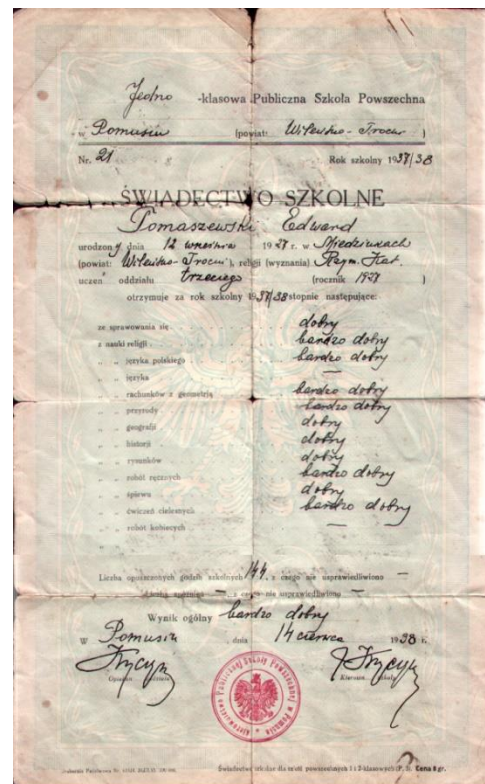 Jedno -klasowa Publiczna Szkoła Powszechna
w Pomusiu (powiat: Wileńsko-Trocki )
Nr. 21 Rok szkolny 1937/38
ŚWIADECTWO SZKOLNE
Tomaszewski Edward
urodzony dnia 12 września 1927 r. w
(powiat: Wileńsko-Trocki), religji (wyznania) Rzym. Kat.
uczeń oddziału trzeciego (rocznik 1927
otrzymuje za rok szkolny 1937/38 stopnie następujące:
ze sprawowania się dobry
z nauki religji bardzo dobry
„ „ języka polskiego bardzo dobry
„ „ języka —
„ „ rachunków z geometrją bardzo dobry
„ „ przyrody bardzo dobry
„ „ geografji dobry
„ „ historji dobry
„ „ rysunków dobry
„ „ robót ręcznych bardzo dobry
„ „ śpiewu dobry
„ „ ćwiczeń cielesnych bardzo dobry
„ „ robót kobiecych —
Liczba opuszczonych godzin szkolnych 144, z czego nie usprawiedliwiono —
Liczba spóźnień —, z czego nie usprawiedliwiono —
Wynik ogólny bardzo dobry
W Pomusiu, dnia 14 czerwca 1938 r.
Opiekun oddziału Kierown. szkoły
Kierownictwo Publicznej Szkoły Powszechnej w Pomusiu
Świadectwo szkolne dla szkół powszechnych 1 i 2-klasowych Cena 8 gr.